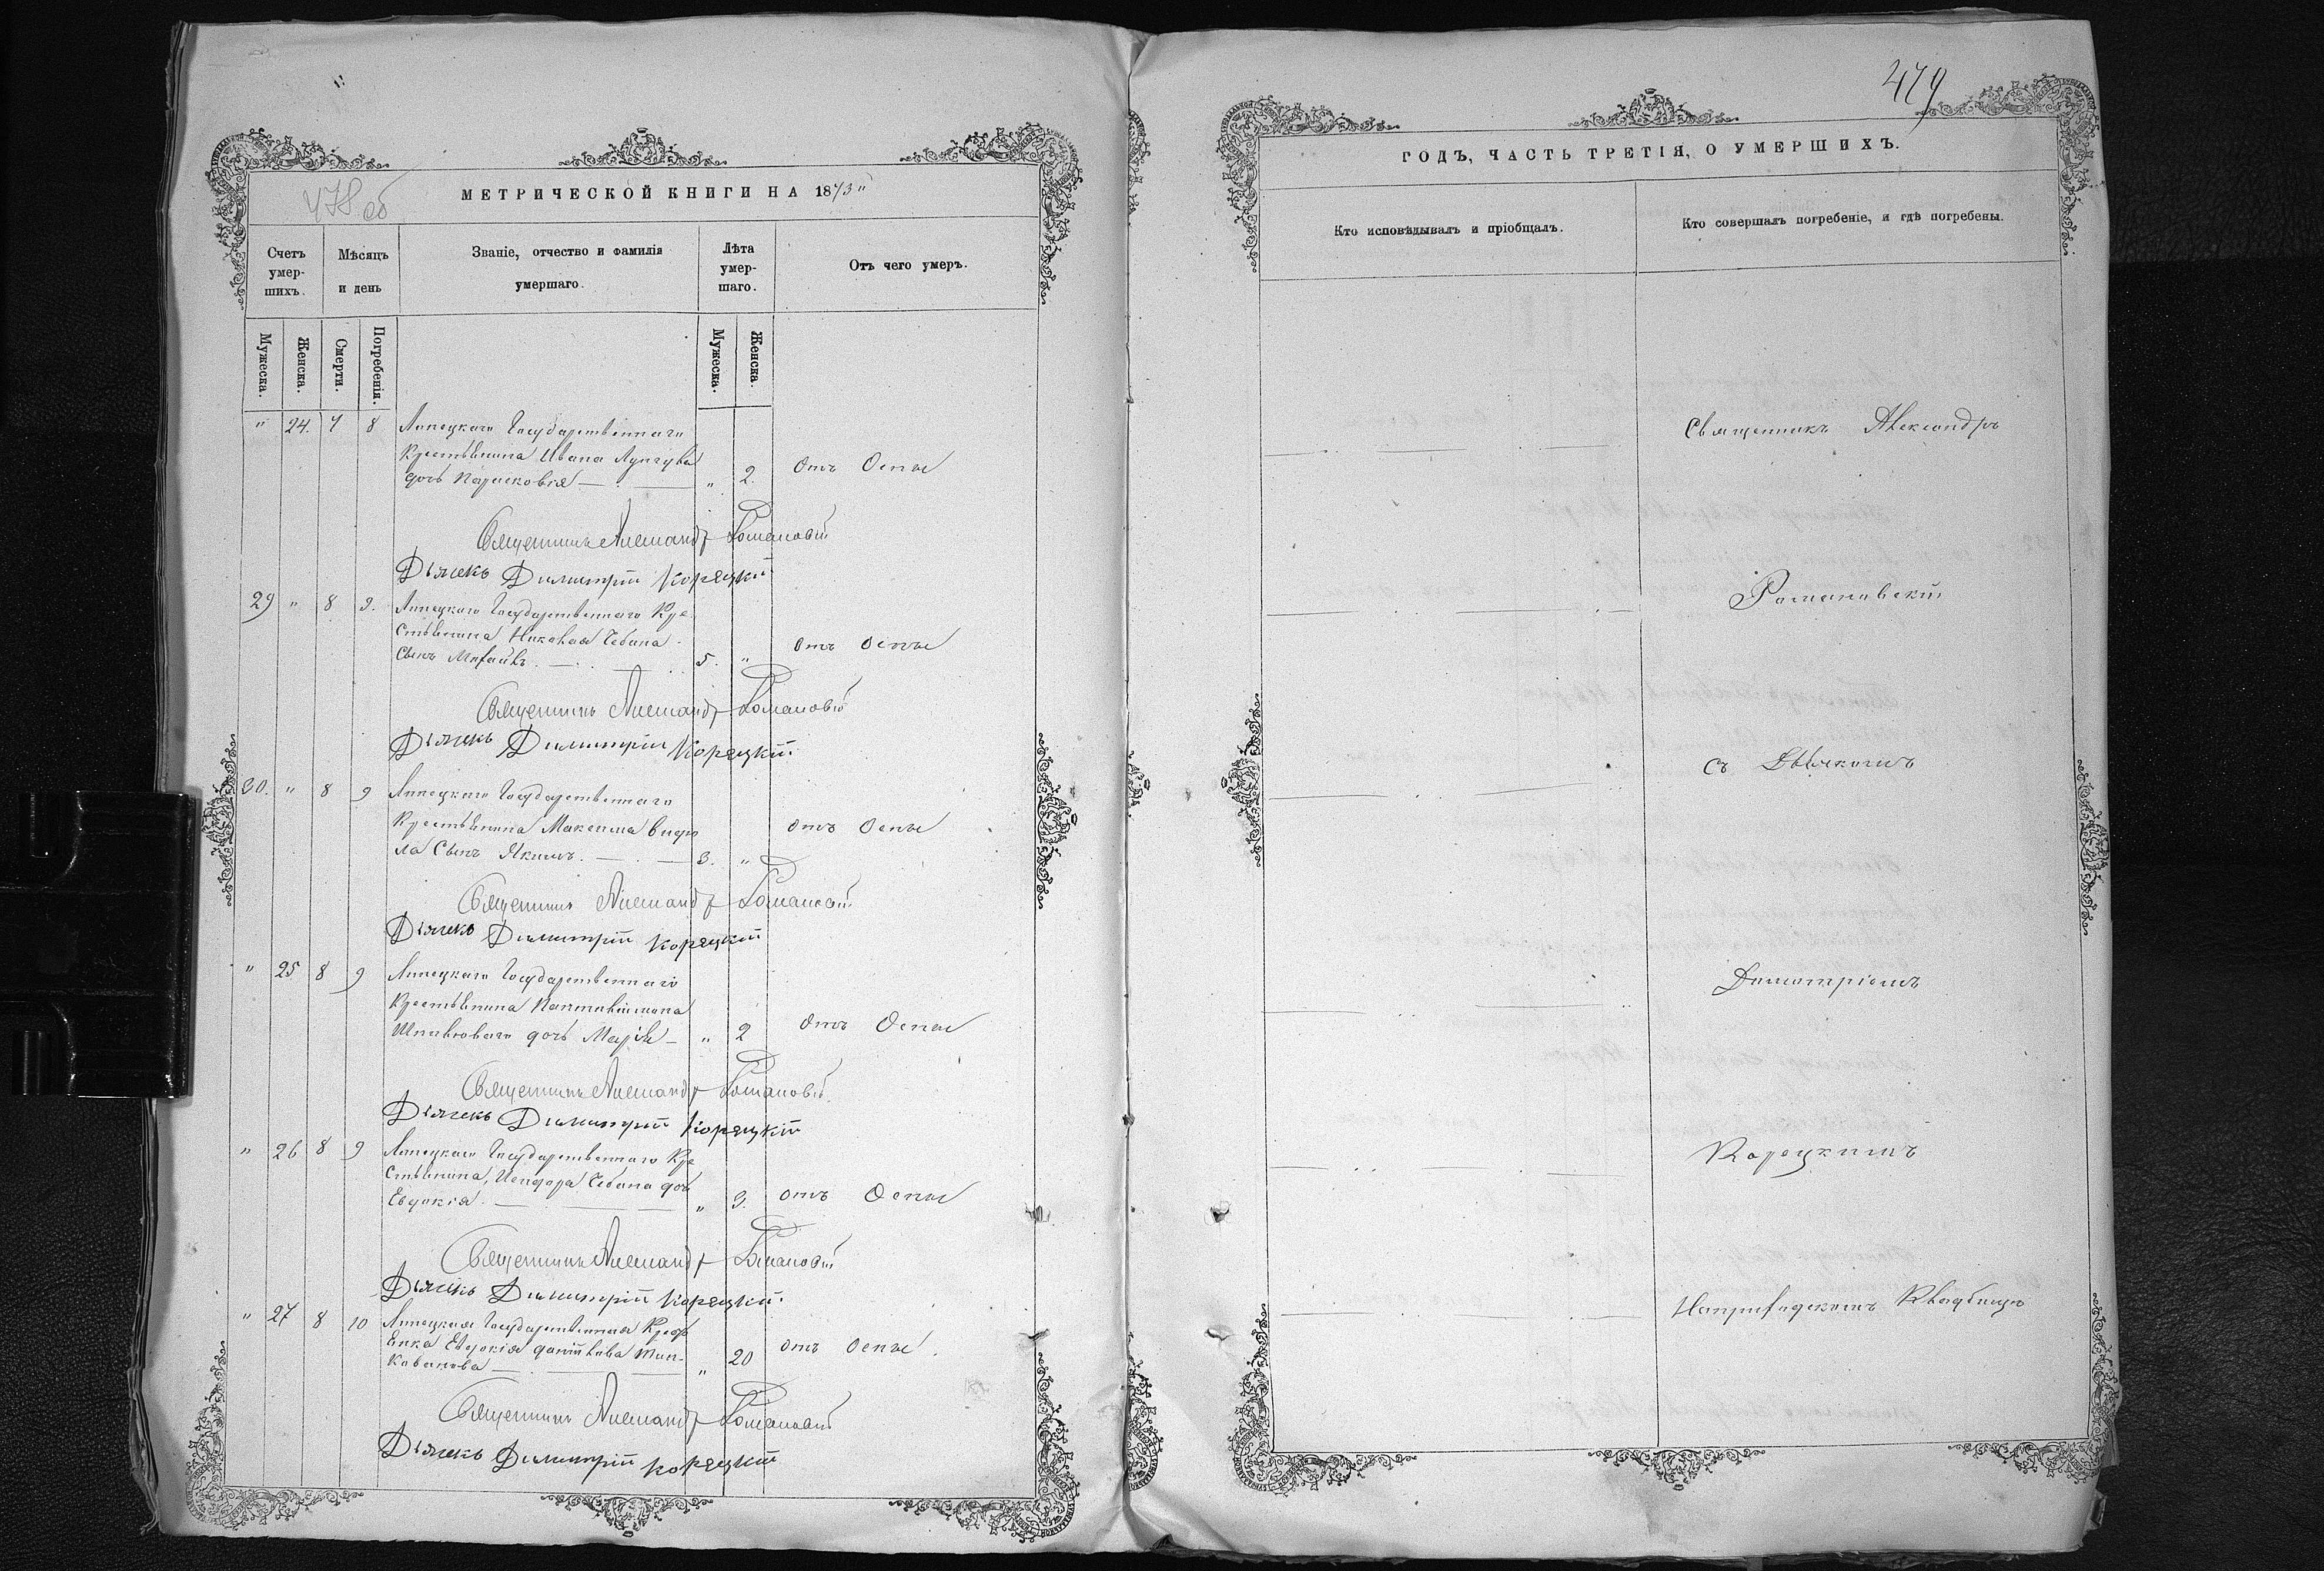 478 об
МЕТРИЧЕСКОЙ КНИГИ НА 1873
Счетъ умершихъ.
Мѣсяцъ и день
Званіе, отчество и фамилія умершаго.
Лѣта умершаго.
Отъ чего умеръ.
Мужеска.
Женска.
Смерти.
Погребенія.
Мужеска.
Женска.
" 24. 7 8 Липецкаго Государственнаго
Крестьянина Ивана
дочь Парасковія " 2. Отъ Оспы
Священникъ Александръ Романовскій
Дьячекъ Димитрій Корецкій
29 " 8 9. Липецкаго Государственнаго Кре
стьянина Николая Чебана
сынъ Михаилъ 5. " отъ оспы
Священникъ Александръ Романовскій
Дьячекъ Димитрій Корецкій
30. " 8 9 Липецкаго Государственнаго
Крестьянина Максима
ла Сынъ Якимъ. 3. " отъ Оспы
Священникъ Александръ Романовскій
Дьячекъ Димитрій Корецкій
" 25 8 9 Липецкаго Государственнаго
Крестьянина
дочь Марія " 2 Отъ Оспы
Священникъ Александръ Романовскій
Дьячекъ Димитрій Корецкій
" 26 8 9 Липецкаго Государственнаго Кре
стьянина, Исидора Чебана дочь
Евдокія " 3. отъ Оспы
Священникъ Александръ Романовскій
Дьячекъ Димитрій Корецкій
" 27 8 10 Липецкая Государственная
Евдокія
" 20 отъ оспы.
Священникъ Александръ Романовскій
Дьячекъ Димитрій Корецкій
479
ГОДЪ, ЧАСТЬ ТРЕТІЯ, О УМЕРШИХЪ.
Кто исповѣдывалъ и пріобщалъ.
Кто совершалъ погребеніе, и гдѣ погребены.
Священникъ Александръ
Романовскій
съ Дьячкомъ
Димитріемъ
Корецкимъ
На приходскомъ Кладбищѣ